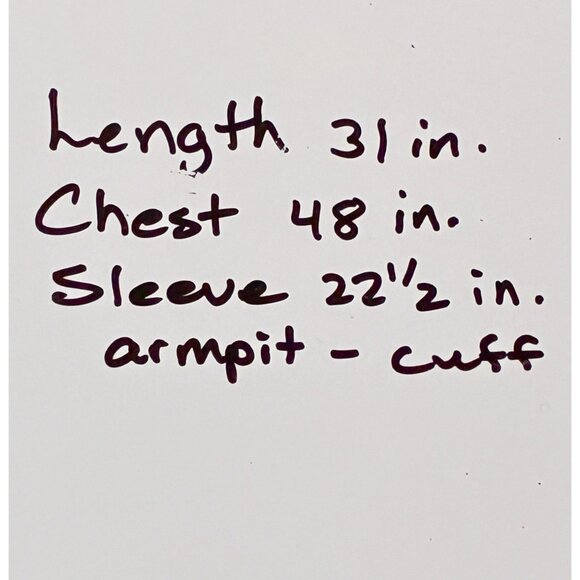 Length 31 in.
Chest 48 in.
Sleeve 22 1/2 in.
armpit - cuff